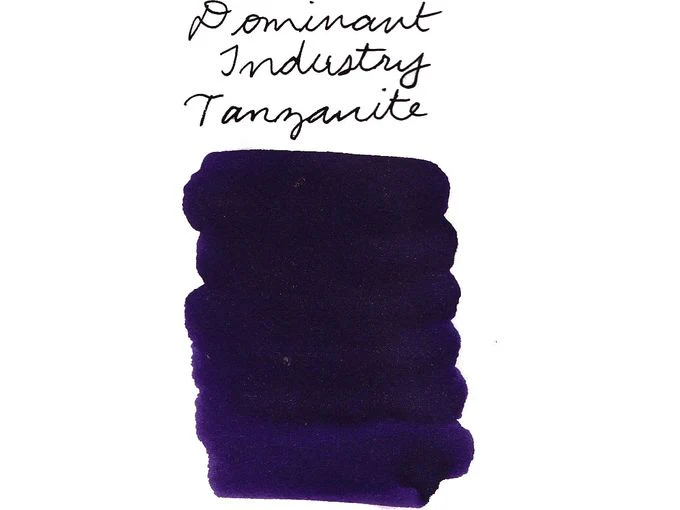 Dominant
Industry
Tanzanite